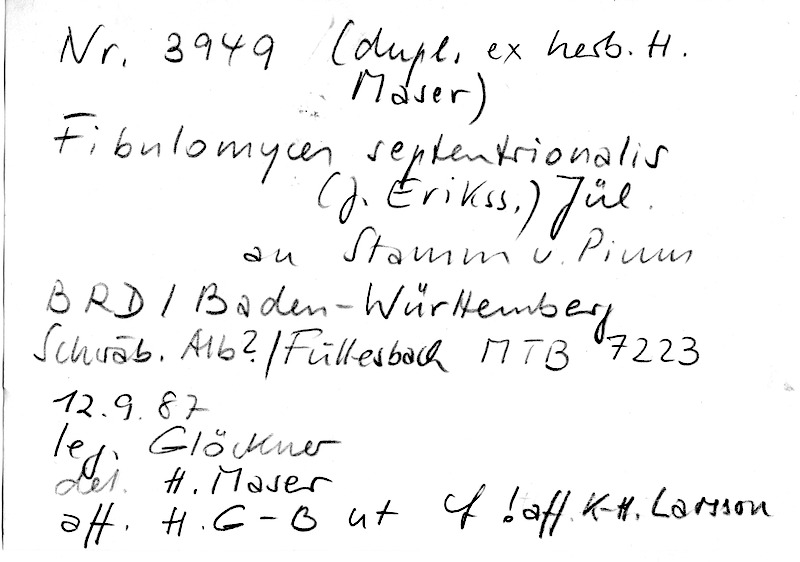 Nr. 3949 (dupl. ex herb. H.
Maser)
Fibulomyces septentrionalis
(J. Erikss.) Jül.
an Stamm v. Pinus
BRD / Baden-Württemberg
Schwäb. Alb? / Füllesbach MTB 7223
12.9.87
leg. Glöckner
det. H. Maser
aff. H. G-B ut cf !aff. K-H. Larsson